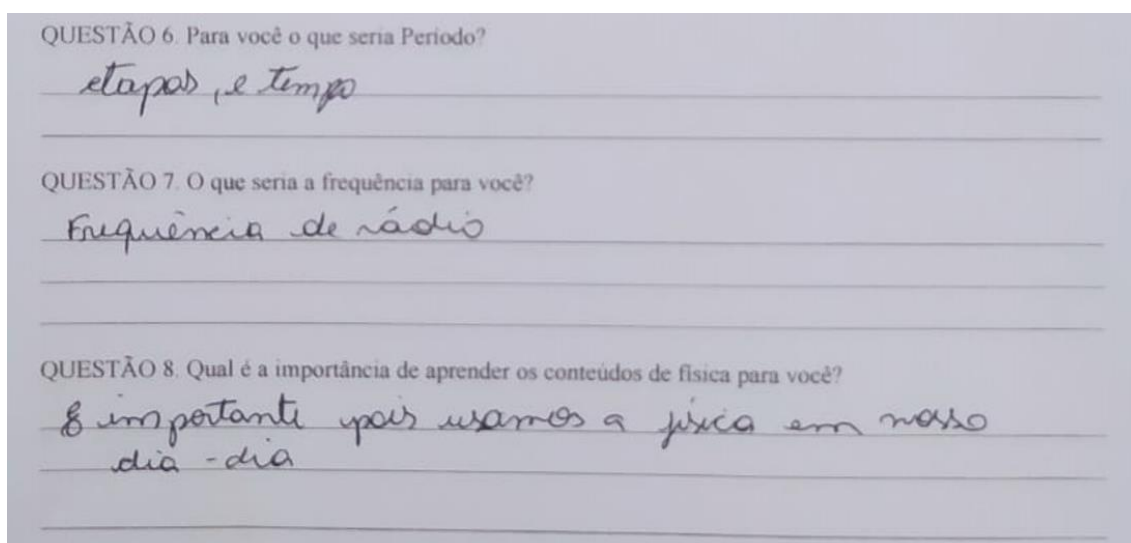 QUESTÃO 6. Para você o que seria Período?
etapas, e tempo
QUESTÃO 7. O que seria a frequência para você?
Frequência de rádio
QUESTÃO 8. Qual é a importância de aprender os conteúdos de física para você?
É importante pois usamos a física em nosso
dia - dia